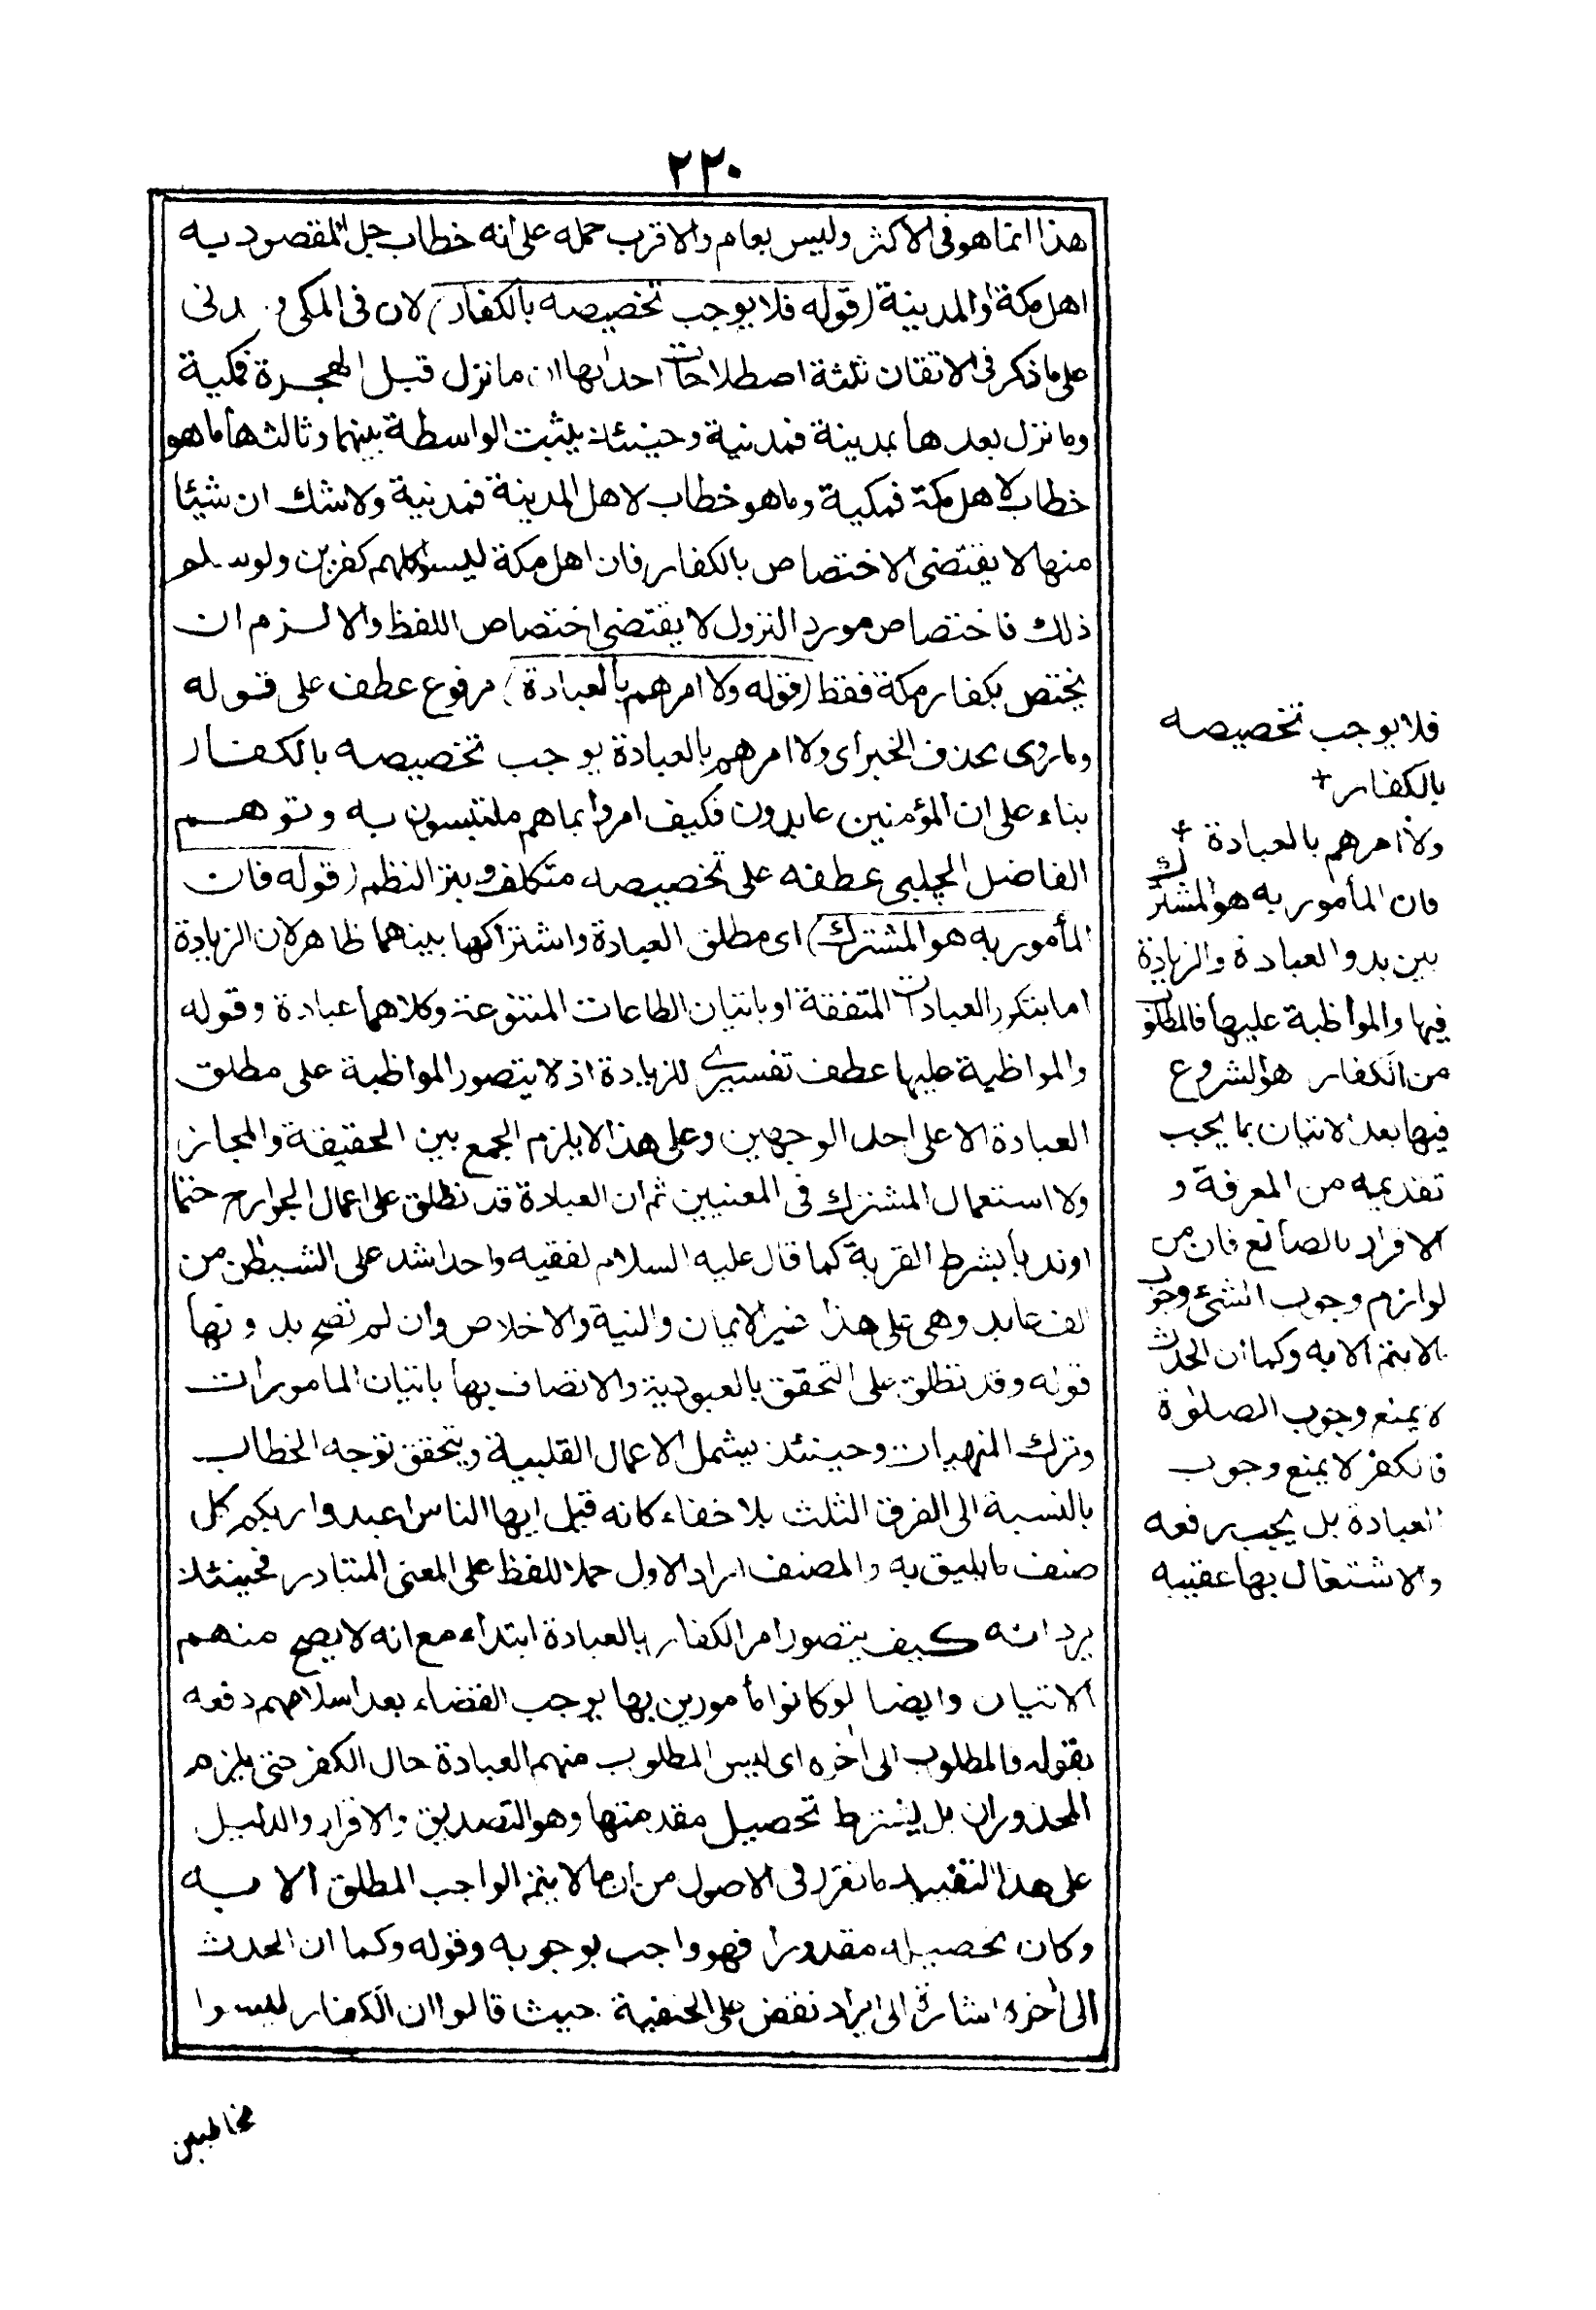 ٢٢٠
هذا انما هو فى الاكثر وليس بعام والاقرب حمله على انه خطاب جل المقصود به
اهل مكة او المدينة (قوله فلا يوجب تخصيصه بالكفار) لان فى المكى و دنى
على ما ذكر فى الاتقان ثلثة اصطلاحات احدابها ان ما نزل قبل الهجرة فمكية
وما نزل بعدها بمدينة فمدنية وحينئذ يثبت الواسطة بينهما وثالثها ما هو
خطاب لاهل مكة فمكية وما هو خطاب لاهل المدينة فمدنية ولا شك ان شيئا
منها لا يقتضى الاختصاص بالكفار فان اهل مكة ليسوا كلهم كفرين ولو سلم
ذلك فاختصاص مورد النزول لا يقتضى اختصاص اللفظ والا لزم ان
يختص بكفار مكة فقط (قوله ولا امرهم بالعبادة) مرفوع عطف على قوله
وما روى بحذف الخبر اى ولا امرهم بالعبادة يوجب تخصيصه بالكفار
بناء على ان المؤمنين عابدون فكيف امروا بما هم ملتبسون به وتوهم
الفاضل الچلبى عطفه على تخصيصه متكلف وبتر النظم (قوله فان
المأمور به هو المشترك) اى مطلق العبادة واشتراكها بينهما ظاهر لان الزيادة
اما بتكرر العبادات المتفقة او باتيان الطاعات المتنوعة وكلاهما عبادة وقوله
والمواظبة عليها عطف تفسيرى للزيادة اذ لا يتصور المواظبة على مطلق
العبادة الا على احد الوجهين وعلى هذا لا يلزم الجمع بين الحقيقة والمجاز
ولا استعمال المشترك فى المعنيين ثم ان العبادة قد تطلق على اعمال الجوارح حتما
او ندبا بشرط القربة كما قال عليه السلام لفقيه واحد اشد على الشيطٰن من
الف عابد وهى على هذا غير الايمان والنية والاخلاص وان لم تصح بدونها
قوله وقد تطلق على التحقق بالعبودية والاتصاف بها باتيان المامورات
وترك المنهيات وحينئذ يشمل الاعمال القلبية ويتحقق توجه الخطاب
بالنسبة الى الفرق الثلث بلا خفاء كانه قيل ايها الناس اعبدوا ربكم كل
صنف ما يليق به والمصنف اراد الاول حملا للفظ على المعنى المتبادر فحينئذ
يرد انه كيف يتصور امر الكفار بالعبادة ابتداء مع انه لا يصح منهم
الاتيان وايضا لو كانوا مأمورين بها يوجب القضاء بعد اسلامهم دفعه
بقوله فالمطلوب الى اٰخره اى ليس المطلوب منهم العبادة حال الكفر حتى يلزم
المحذوران بل يشترط تحصيل مقدمتها وهو التصديق والاقرار والدليل
على هذا التقييد ما تقرر فى الاصول من ان ما لا يتم الواجب المطلق الا به
وكان تحصيله مقدورا فهو واجب بوجوبه وقوله وكما ان الحدث
الى اٰخره اشارة الى ايراد نقض على الحنفية حيث قالوا ان الكفار ليسوا
مخاطبين
فلا يوجب تخصيصه
بالكفار +
ولا امرهم بالعبادة +
فان المأمور به هو المشترك
بين بدو العبادة والزيادة
فيها والمواظبة عليها فالمطلوب
من الكفار هو الشروع
فيها بعد الاتيان بما يجب
تقديمه من المعرفة و
الاقرار بالصانع فان من
لوازم وجوب الشئ وجوب
ما لا يتم الا به وكما ان الحدث
لا يمنع وجوب الصلوٰة
فالكفر لا يمنع وجوب
العبادة بل يجب رفعه
والاشتغال بها عقيبه